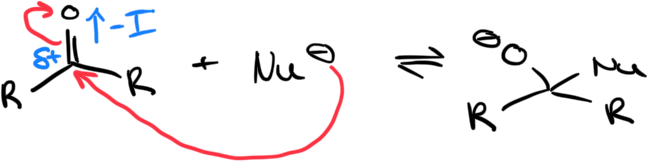 O -I
δ+
R R + Nu⊖ ⇌ ⊖O Nu
R R